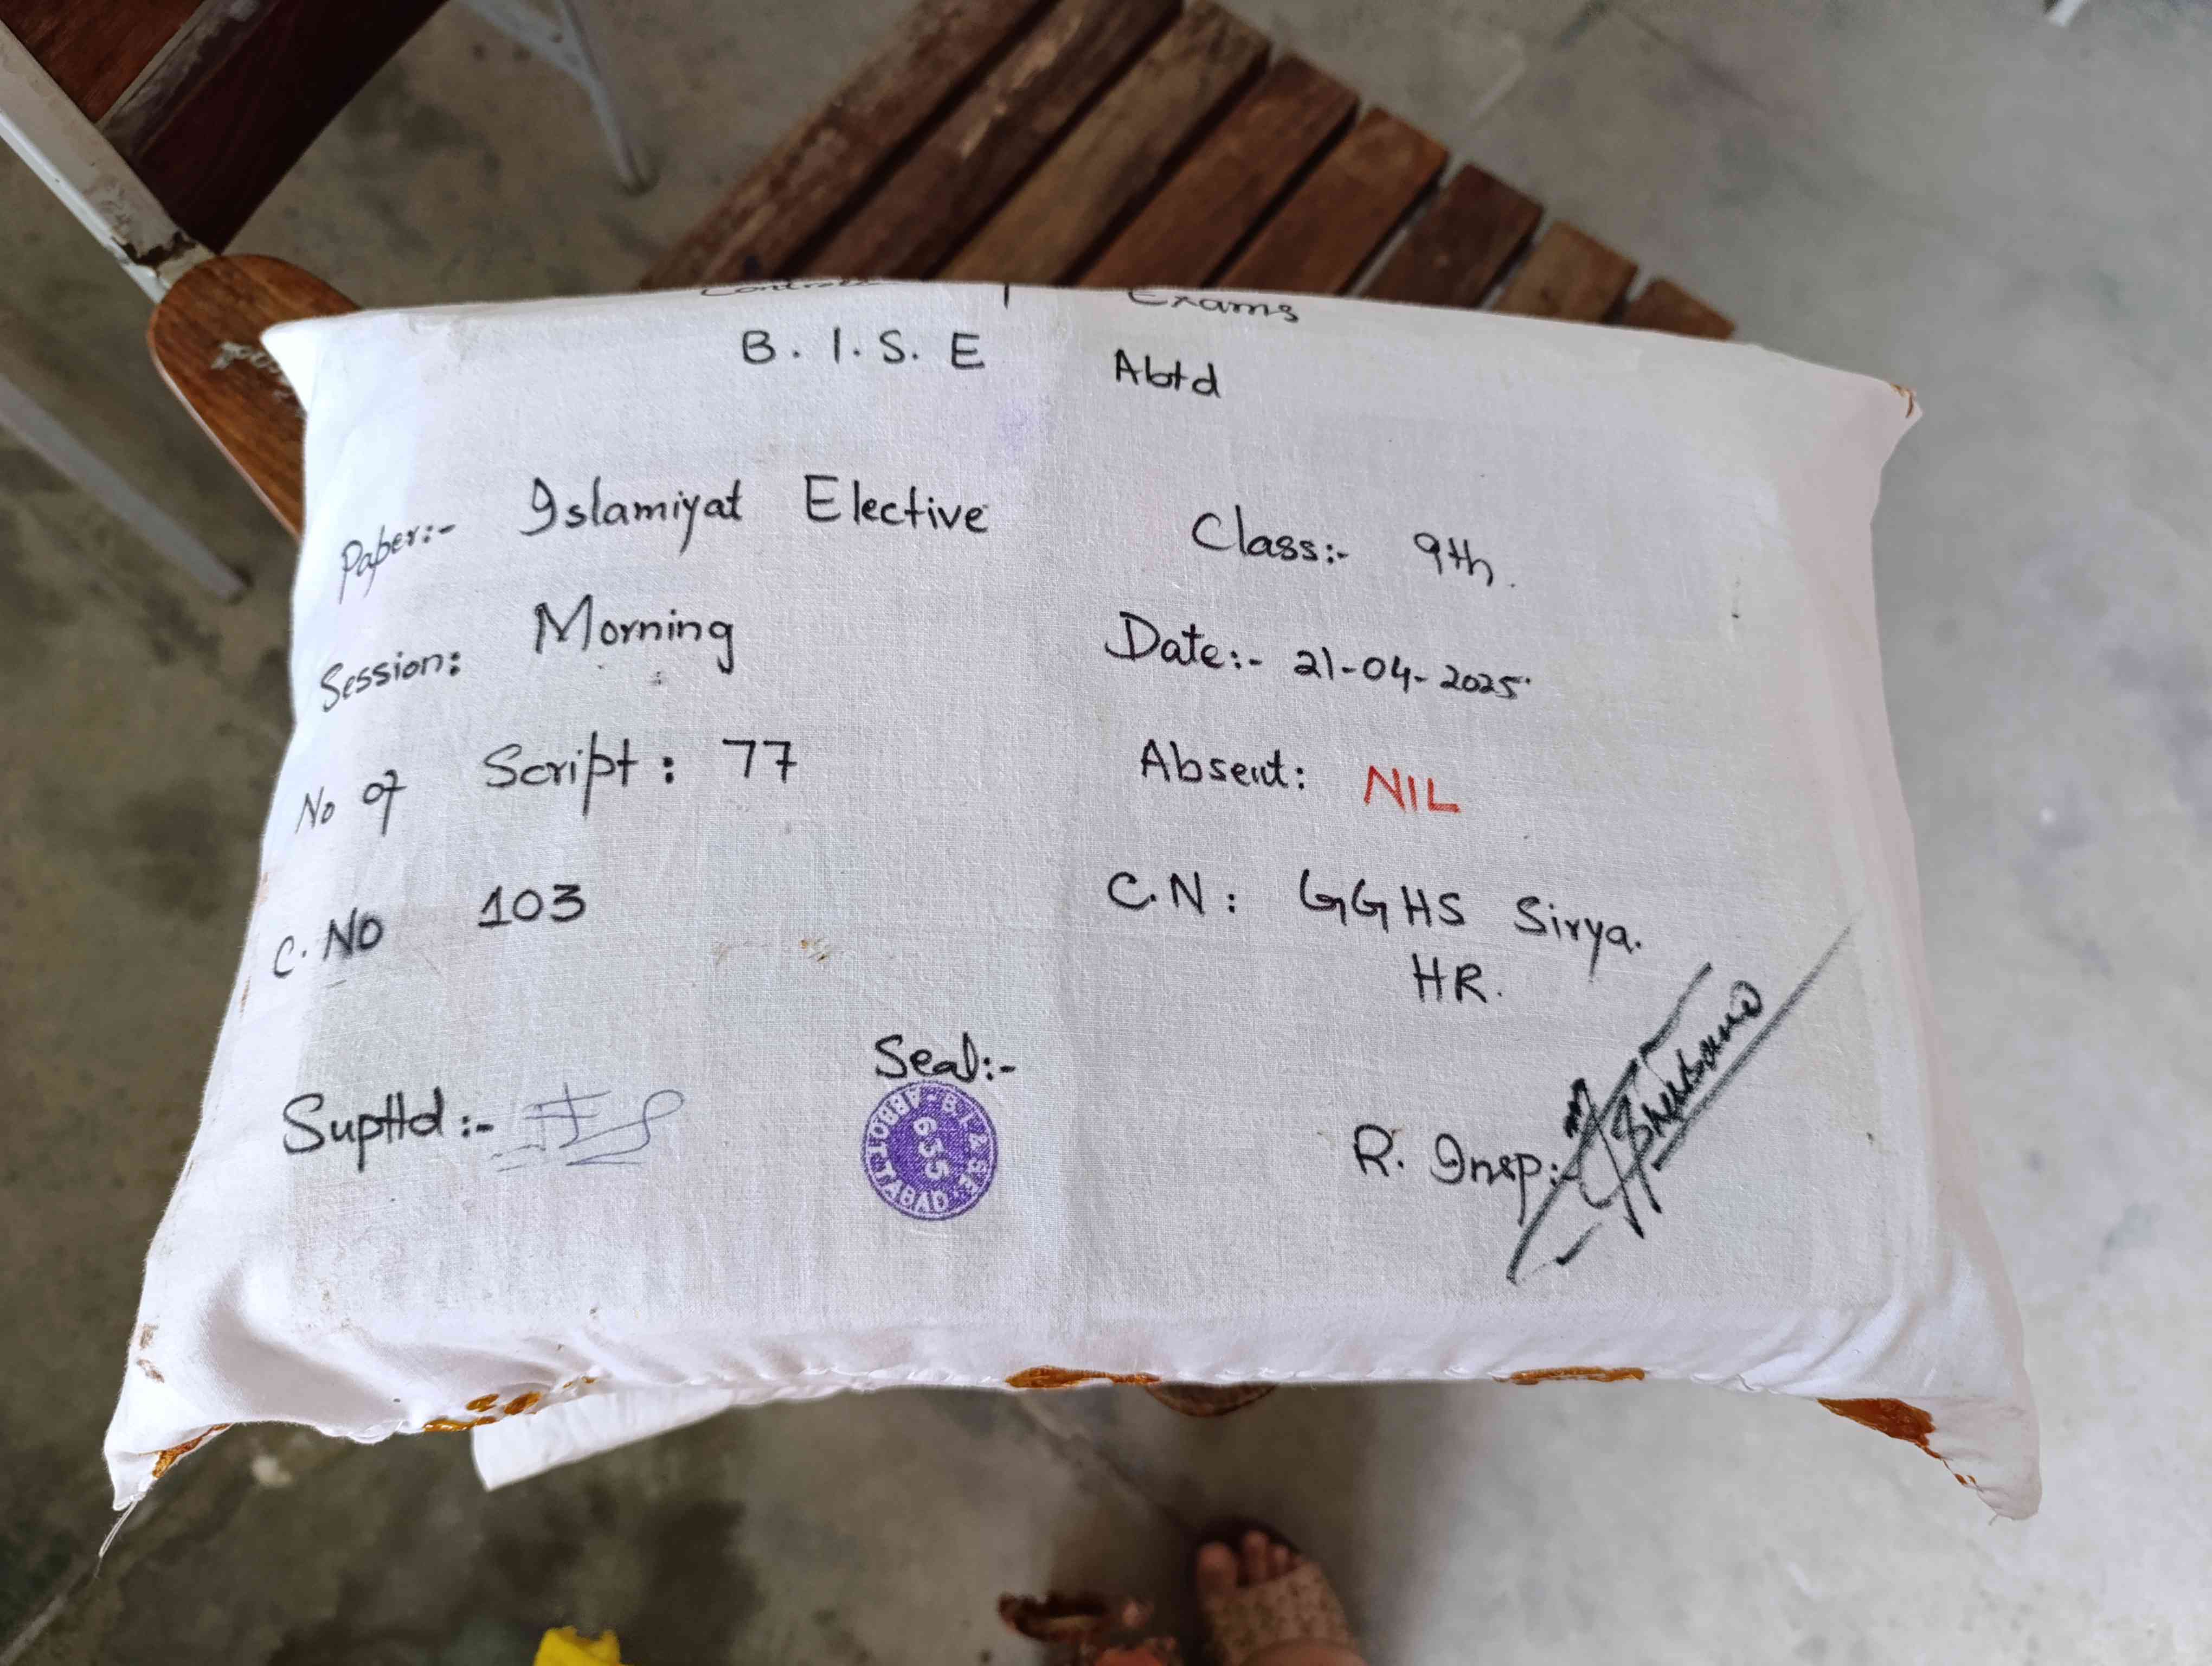 Exams
B. I. S. E Abtd
Paper:- Islamiyat Elective Class:- 9th.
Session: Morning Date:- 21-04-2025
No of Script: 77 Absent: NIL
C. No 103 C.N: GGHS Sirya.
HR.
Supttd:- Seal:- R. Insp:
B.I.&S.E. ABBOTTABAD
635